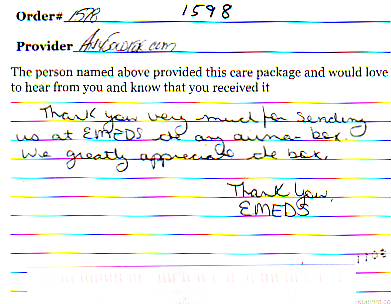 Order# 1598 1598
Provider AnySoldier.com
The person named above provided this care package and would love
to hear from you and know that you received it
Thank you very much for sending
us at EMEDS the any box.
We greatly appreciate the box.
Thank You,
EMEDS